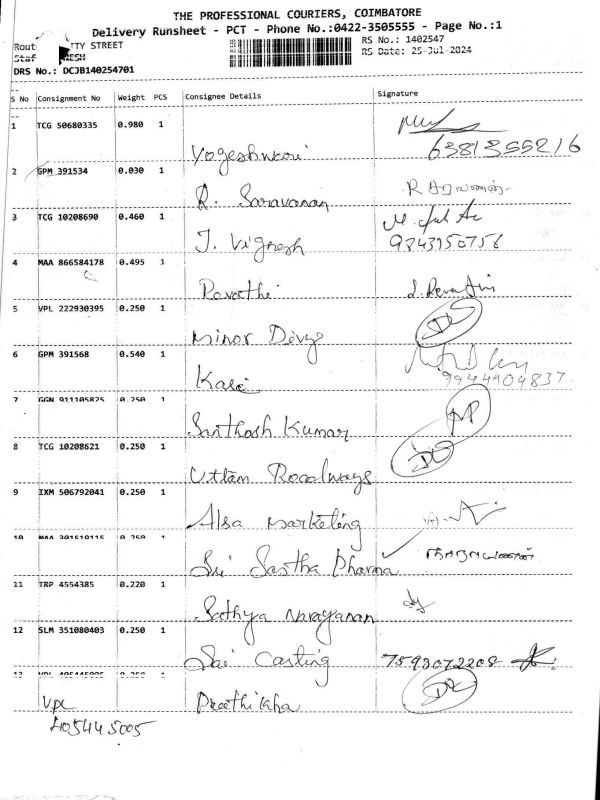 THE PROFESSIONAL COURIERS, COIMBATORE
Delivery Runsheet - PCT - Phone No.:0422-3505555 - Page No.:1
RS No.: 1402547
STREET
RS Date: 25-Jul-2024
DRS No.: DCJB140254701
S No Consignment No Weight PCS Consignee Details Signature
1 TCG 50680335 0.980 1 Yogeshwari
2 GPM 391534 0.030 1 R. Saravanan
3 TCG 10208690 0.460 1 J. Vignesh 9243950756
4 MAA 866584178 0.495 1 Revathi
5 VPL 222930395 0.250 1 Minor Divya
6 GPM 391568 0.540 1 Kasi 9944904837
7 GGN 911105825 0.250 1 Santhosh Kumar
8 TCG 10208621 0.250 1 Uttam Roadways
9 IXM 506792041 0.250 1 Alsa Marketing
10 0.250 1 Sri Sastha Pharma
11 TRP 4554385 0.220 1 Sathya Narayanan
12 SLM 351080403 0.250 1 Sai Casting 7593072208
13 VPL 405445005 0.250 1 Preethikha
VPL
405445005